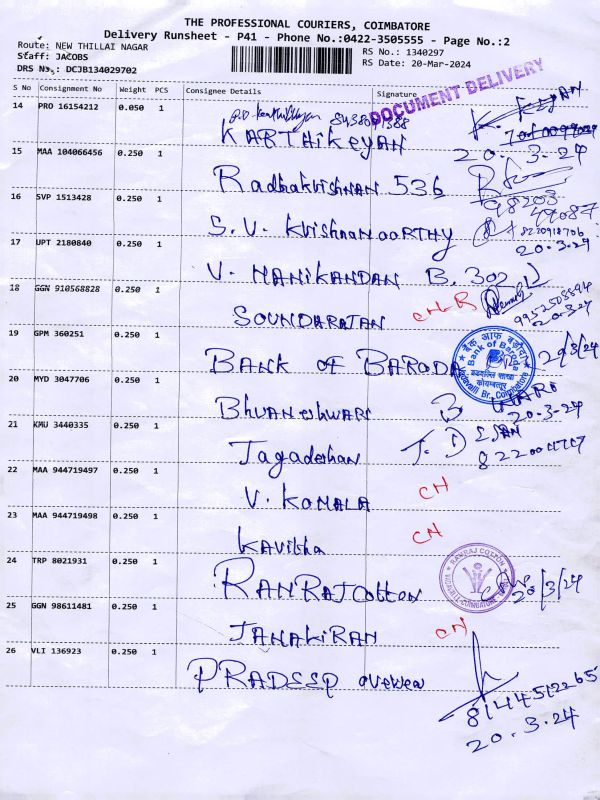 THE PROFESSIONAL COURIERS, COIMBATORE
Delivery Runsheet - P41 - Phone No.:0422-3505555 - Page No.:2
Route: NEW THILLAI NAGAR
RS No.: 1340297
Staff: JACOBS
RS Date: 20-Mar-2024
DRS No.: DCJB134029702
DOCUMENT DELIVERY
S No Consignment No Weight PCS Consignee Details Signature
14 PRO 16154212 0.050 1
KARTHIKEYAN
20.3.24
15 MAA 104066456 0.250 1
Radhakrishnan 536
98203
49087
16 SVP 1513428 0.250 1
S.V. KrishnamOORTHY
8220918706
20.3.24
17 UPT 2180840 0.250 1
V. MANIKANDAN B. 302
18 GGN 910568828 0.250 1
SOUNDARAJAN
9952508894
20.3.24
19 GPM 360251 0.250 1
BANK OF BARODA
बैंक ऑफ़ बड़ौदा
Bank of Baroda
कोयम्बतूर
Vadavalli Br., Coimbatore
20/3/24
20 MYD 3047706 0.250 1
BhuvanEshwari
20.3.24
21 KMU 3440335 0.250 1
Jagadeshan
22 MAA 944719497 0.250 1
V. KOMALA CH
23 MAA 944719498 0.250 1
Kavitha CH
24 TRP 8021931 0.250 1
RAMRAJ Cotten
RAMRAJ COTTON
VADAVALLI, COIMBATORE
20/3/24
25 GGN 98611481 0.250 1
JANAKIRAN CH
26 VLI 136923 0.250 1
PRADEEP
20.3.24